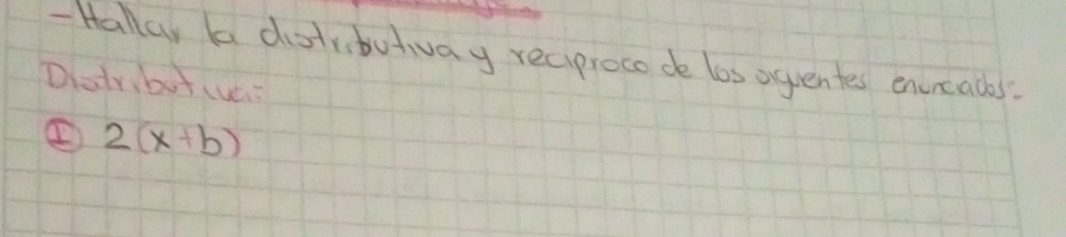 - Hallar la distributiva y reciproco de los siguientes enunciados:
Distributiva:
I 2(x+b)